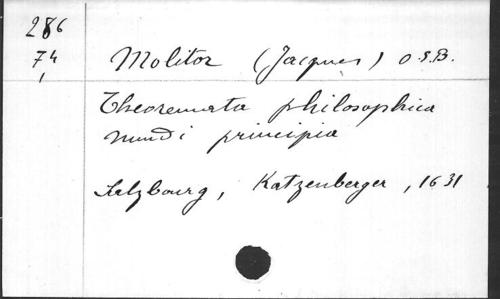 286
74
Molitor (Jacques) O.S.B.
Theoremata philosophica
mundi principia
Salzbourg, Katzenberger, 1631